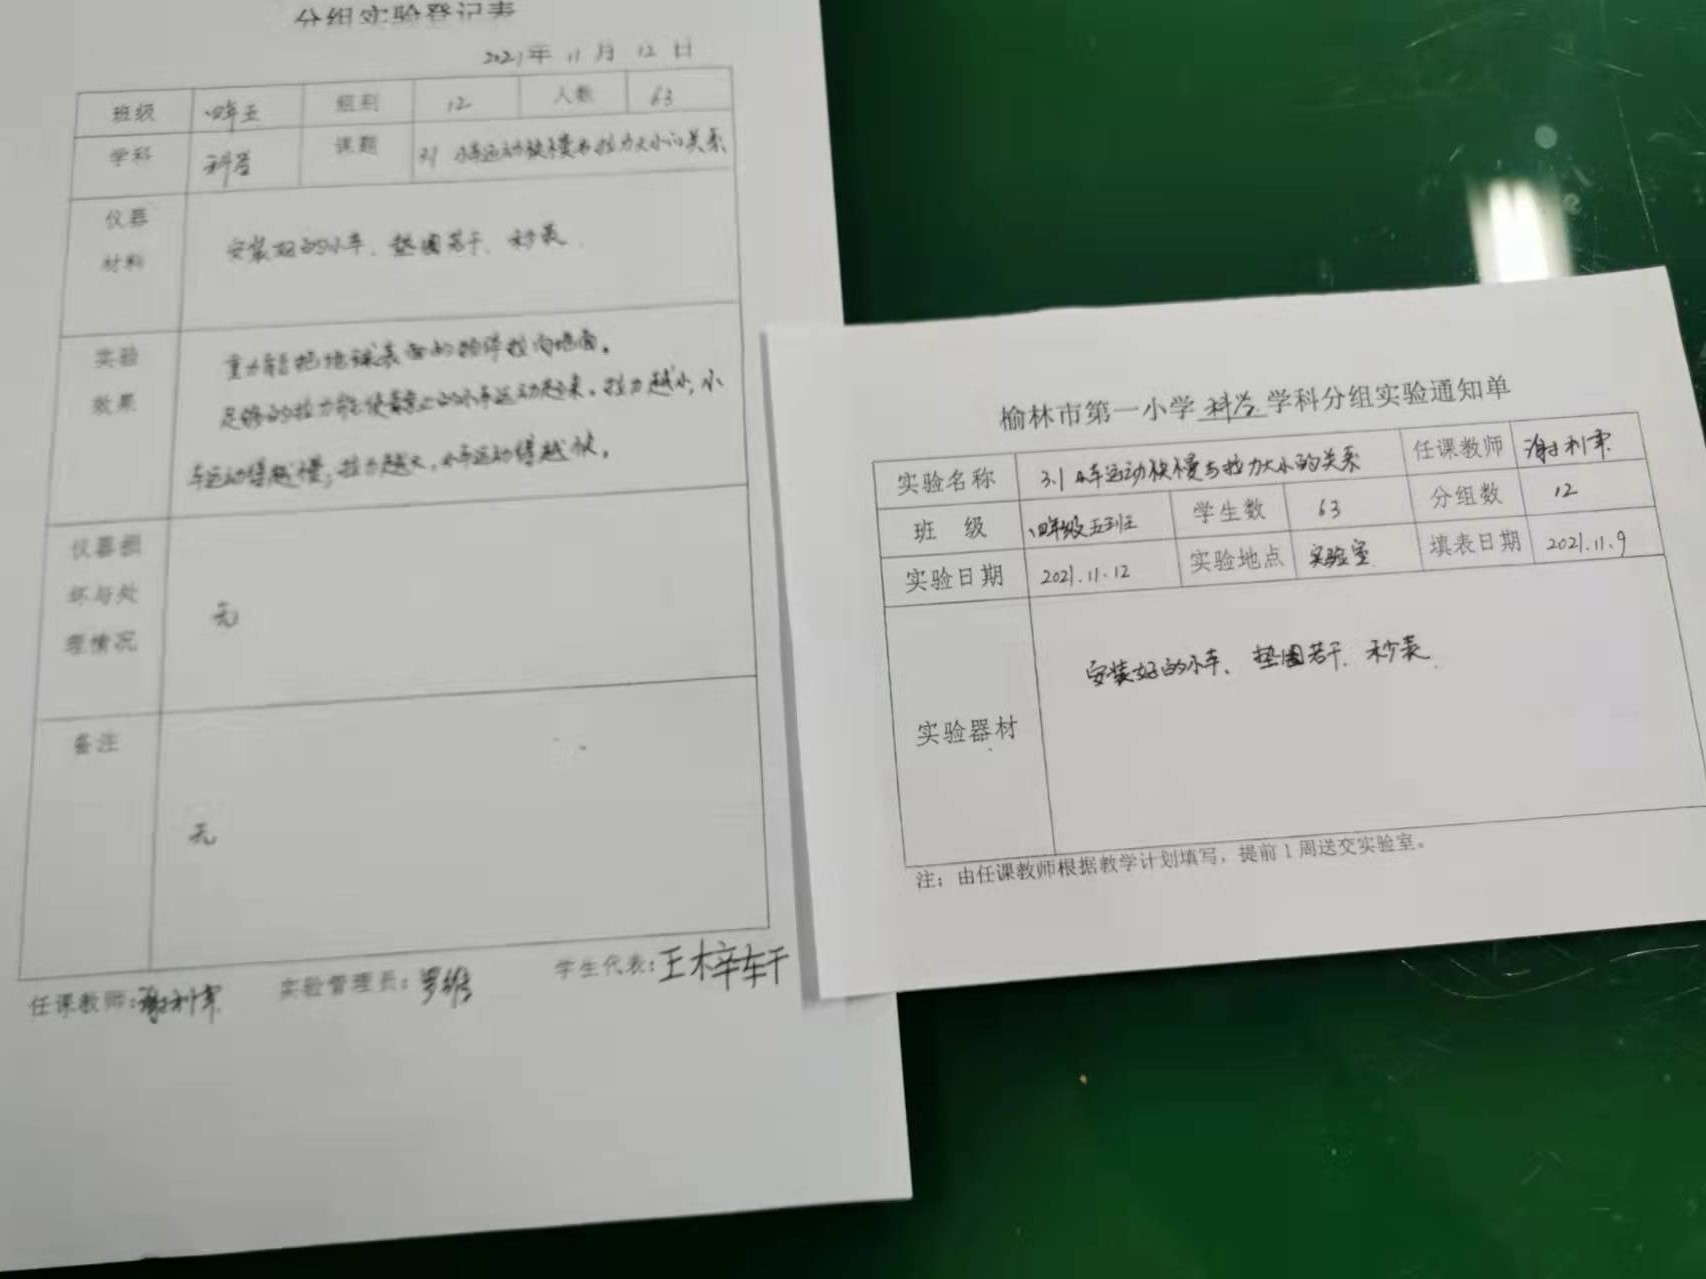 分组实验登记表
2021年 11 月 12 日
班级 四年五 组别 12 人数 63
学科 科学 课题 3.1 小车运动快慢与拉力大小的关系
仪器
材料
安装好的小车、垫圈若干、秒表
实验
效果
重力能把地球表面的物体拉向地面。
足够的拉力能使静止的小车运动起来。拉力越小,小
车运动得越慢;拉力越大,小车运动得越快。
仪器损
坏与处
理情况
无
备注
无
任课教师:谢利军 实验管理员:罗维 学生代表:王梓轩
榆林市第一小学 科学 学科分组实验通知单
实验名称 3.1 小车运动快慢与拉力大小的关系 任课教师 谢利军
班 级 四年级五班 学生数 63 分组数 12
实验日期 2021.11.12 实验地点 实验室 填表日期 2021.11.9
实验器材 安装好的小车、垫圈若干、秒表
注:由任课教师根据教学计划填写,提前1周送交实验室。